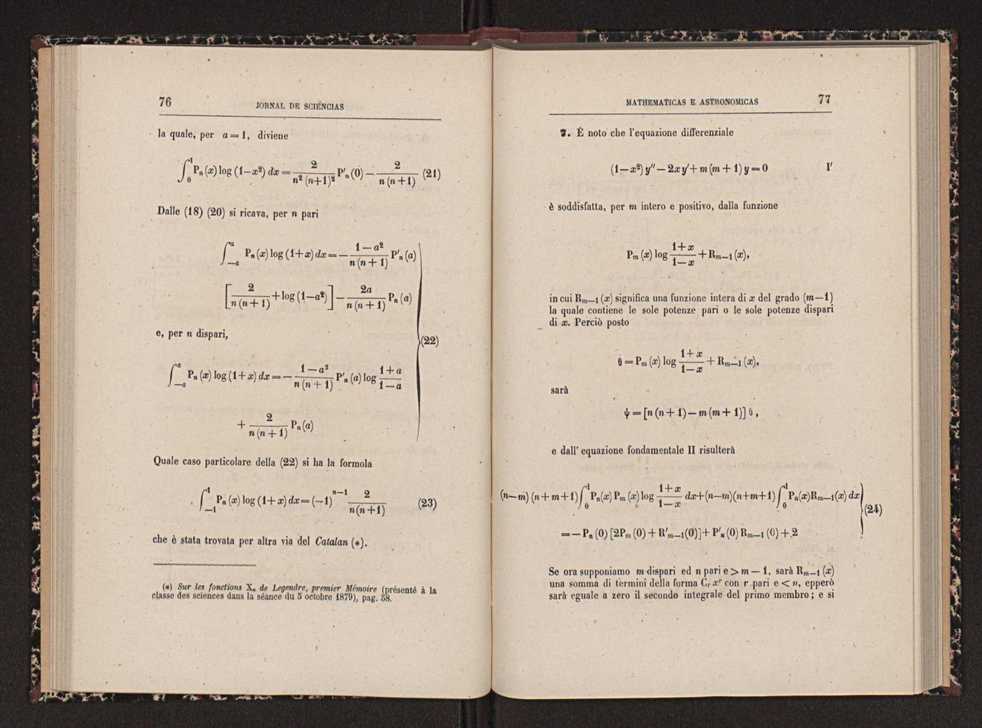 76
JORNAL DE SCIENCIAS
la quale, per a = 1, diviene
∫₀¹ Pₙ(x) log (1−x²) dx = 2/(n²(n+1)²) P′ₙ(0) − 2/(n(n+1)) (21)
Dalle (18) (20) si ricava, per n pari
∫₋ₐᵃ Pₙ(x) log (1+x) dx = − (1−a²)/(n(n+1)) P′ₙ(a)
[2/(n(n+1)) + log (1−a²)] − 2a/(n(n+1)) Pₙ(a)
e, per n dispari,
(22)
∫₋ₐᵃ Pₙ(x) log (1+x) dx = − (1−a²)/(n(n+1)) P′ₙ(a) log (1+a)/(1−a)
+ 2/(n(n+1)) Pₙ(a)
Quale caso particolare della (22) si ha la formola
∫₋₁¹ Pₙ(x) log (1+x) dx = (−1)ⁿ⁻¹ 2/(n(n+1)) (23)
che è stata trovata per altra via del Catalan (*).
(*) Sur les fonctions Xₙ de Legendre, premier Mémoire (présenté à la
classe des sciences dans la séance du 5 octobre 1879), pag. 58.
MATHEMATICAS E ASTRONOMICAS 77
7. È noto che l'equazione differenziale
(1−x²) y″ − 2xy′ + m(m+1) y = 0 I′
è soddisfatta, per m intero e positivo, dalla funzione
Pₘ(x) log (1+x)/(1−x) + Rₘ₋₁(x),
in cui Rₘ₋₁(x) significa una funzione intera di x del grado (m−1)
la quale contiene le sole potenze pari o le sole potenze dispari
di x. Perciò posto
θ = Pₘ(x) log (1+x)/(1−x) + Rₘ₋₁(x),
sarà
ψ = [n(n+1) − m(m+1)] θ,
e dall' equazione fondamentale II risulterà
(n−m)(n+m+1) ∫₀¹ Pₙ(x) Pₘ(x) log (1+x)/(1−x) dx + (n−m)(n+m+1) ∫₀¹ Pₙ(x) Rₘ₋₁(x) dx
(24)
= − Pₙ(0) [2Pₘ(0) + R′ₘ₋₁(0)] + P′ₙ(0) Rₘ₋₁(0) + 2
Se ora supponiamo m dispari ed n pari e > m − 1, sarà Rₘ₋₁(x)
una somma di termini della forma Cᵣ xʳ con r pari e < n, epperò
sarà eguale a zero il secondo integrale del primo membro; e si